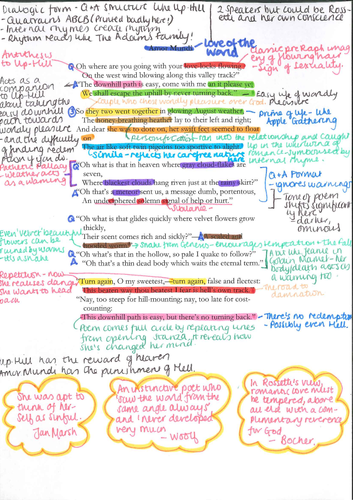 Dialogic form - Q+A Structure like Up Hill
Quatrains ABCB (Rhymed badly here!)
Internal rhymes create rhythm
Rhythm reads like The Adams Family!
2 Speakers but could be Ross-
etti and her own conscience
Amor Mundi
Love of the
world
Anetheisis
to Up-Hill
Classic pre Raph imag
ery of flowing hair
- Sign of Sexuality.
Oh where are you going with your love-locks flowing
On the west wind blowing along this valley track?"
"The downhill path is easy, come with me an it please ye,
We shall escape the uphill by never turning back."
Easy life of worldly
pleasure
People who need worldly pleasure over God
So they two went together in glowing August weather,
The honey-breathing heather lay to their left and right;
And dear she was to dote on, her swift feet seemed to float
on
The air like soft twin pigeons too sportive to alight.
Simile - reflects her carefree nature
here
Acts as a
companion to
Up-Hill
about taking the
easy down hill
path towards
worldly pleasure
and the difficulty
of finding redem
ption if you do.
"Oh what is that in heaven where grey cloud-flakes are
seven,
Where blackest clouds hang riven just at the rainy skirt?"
"Oh that's a meteor sent us, a message dumb, portentous,
An undeciphered solemn signal of help or hurt."
Q + A Format
- ignores warnings
Tone of poem
shifts significantly
here -
darker,
ominous
"Oh what is that glides quickly where velvet flowers grow
thickly,
Their scent comes rich and sickly?"—"A scaled and
hooded worm."
"Oh what's that in the hollow, so pale I quake to follow?"
"Oh that's a thin dead body which waits the eternal term."
Even 'velvet' beautiful
flowers can be
ruined by worms
- it's a snare
Snake from Genesis - Encourages temptation + The Fall
Repetition - now
she realises danger
She wants to head
back
"Turn again, O my sweetest,—turn again, false and fleetest:
This beaten way thou beatest I fear is hell's own track."
"Nay, too steep for hill-mounting; nay, too late for cost-
counting:
This downhill path is easy, but there's no turning back."
The road to
damnation
Poem comes full circle by repeating lines
from opening stanza, reveals how
she's changed her mind
- There's no redemption
- Possibly even Hell.
Up Hill has the reward of heaven
Amor Mundi has the punishment of Hell.
She was apt to
think of her-
self as sinful.
Jan Marsh
An instinctive poet who
'saw the world from
the same angle always'
and 'never developed
very much'
- Woolf
In Rossetti's view,
romantic love must
be tempered, above
all else, with a com-
plimentary reverence
for God
- Bocher.